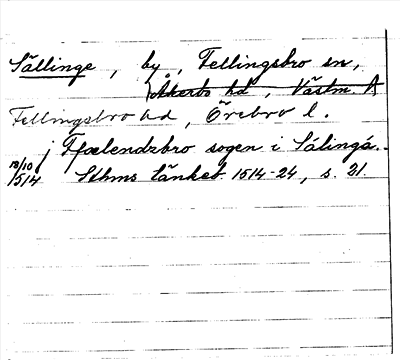 Sällinge, by, Fellingsbro sn,
Åkerbo hd, Västm. l
Fellingsbro hd, Örebro l.
j Ffælendzbro sogen i Sálingá.
18/10 1514 Sthms tänkeb. 1514-24, s. 21.